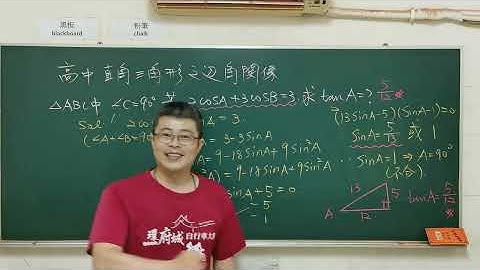 黑板
blackboard
粉筆
chalk
高中 直角三角形之边角關係
△ABC中 ∠C=90° 若 2cosA+3cosB=3. 求 tanA=? 5/12
Sol:
= 3
(∠A+∠B=90
= 3-3sinA
= 9-18sinA+9sin²A
) = 9-18sinA+9sin²A
sinA+5=0
-5
-1
(13sinA-5)(sinA-1)=0
sinA=5/13 或 1
∵ sinA=1 ⇒ A=90°
(不合)
13
5
12
A
tanA=5/12
環府城
自行車